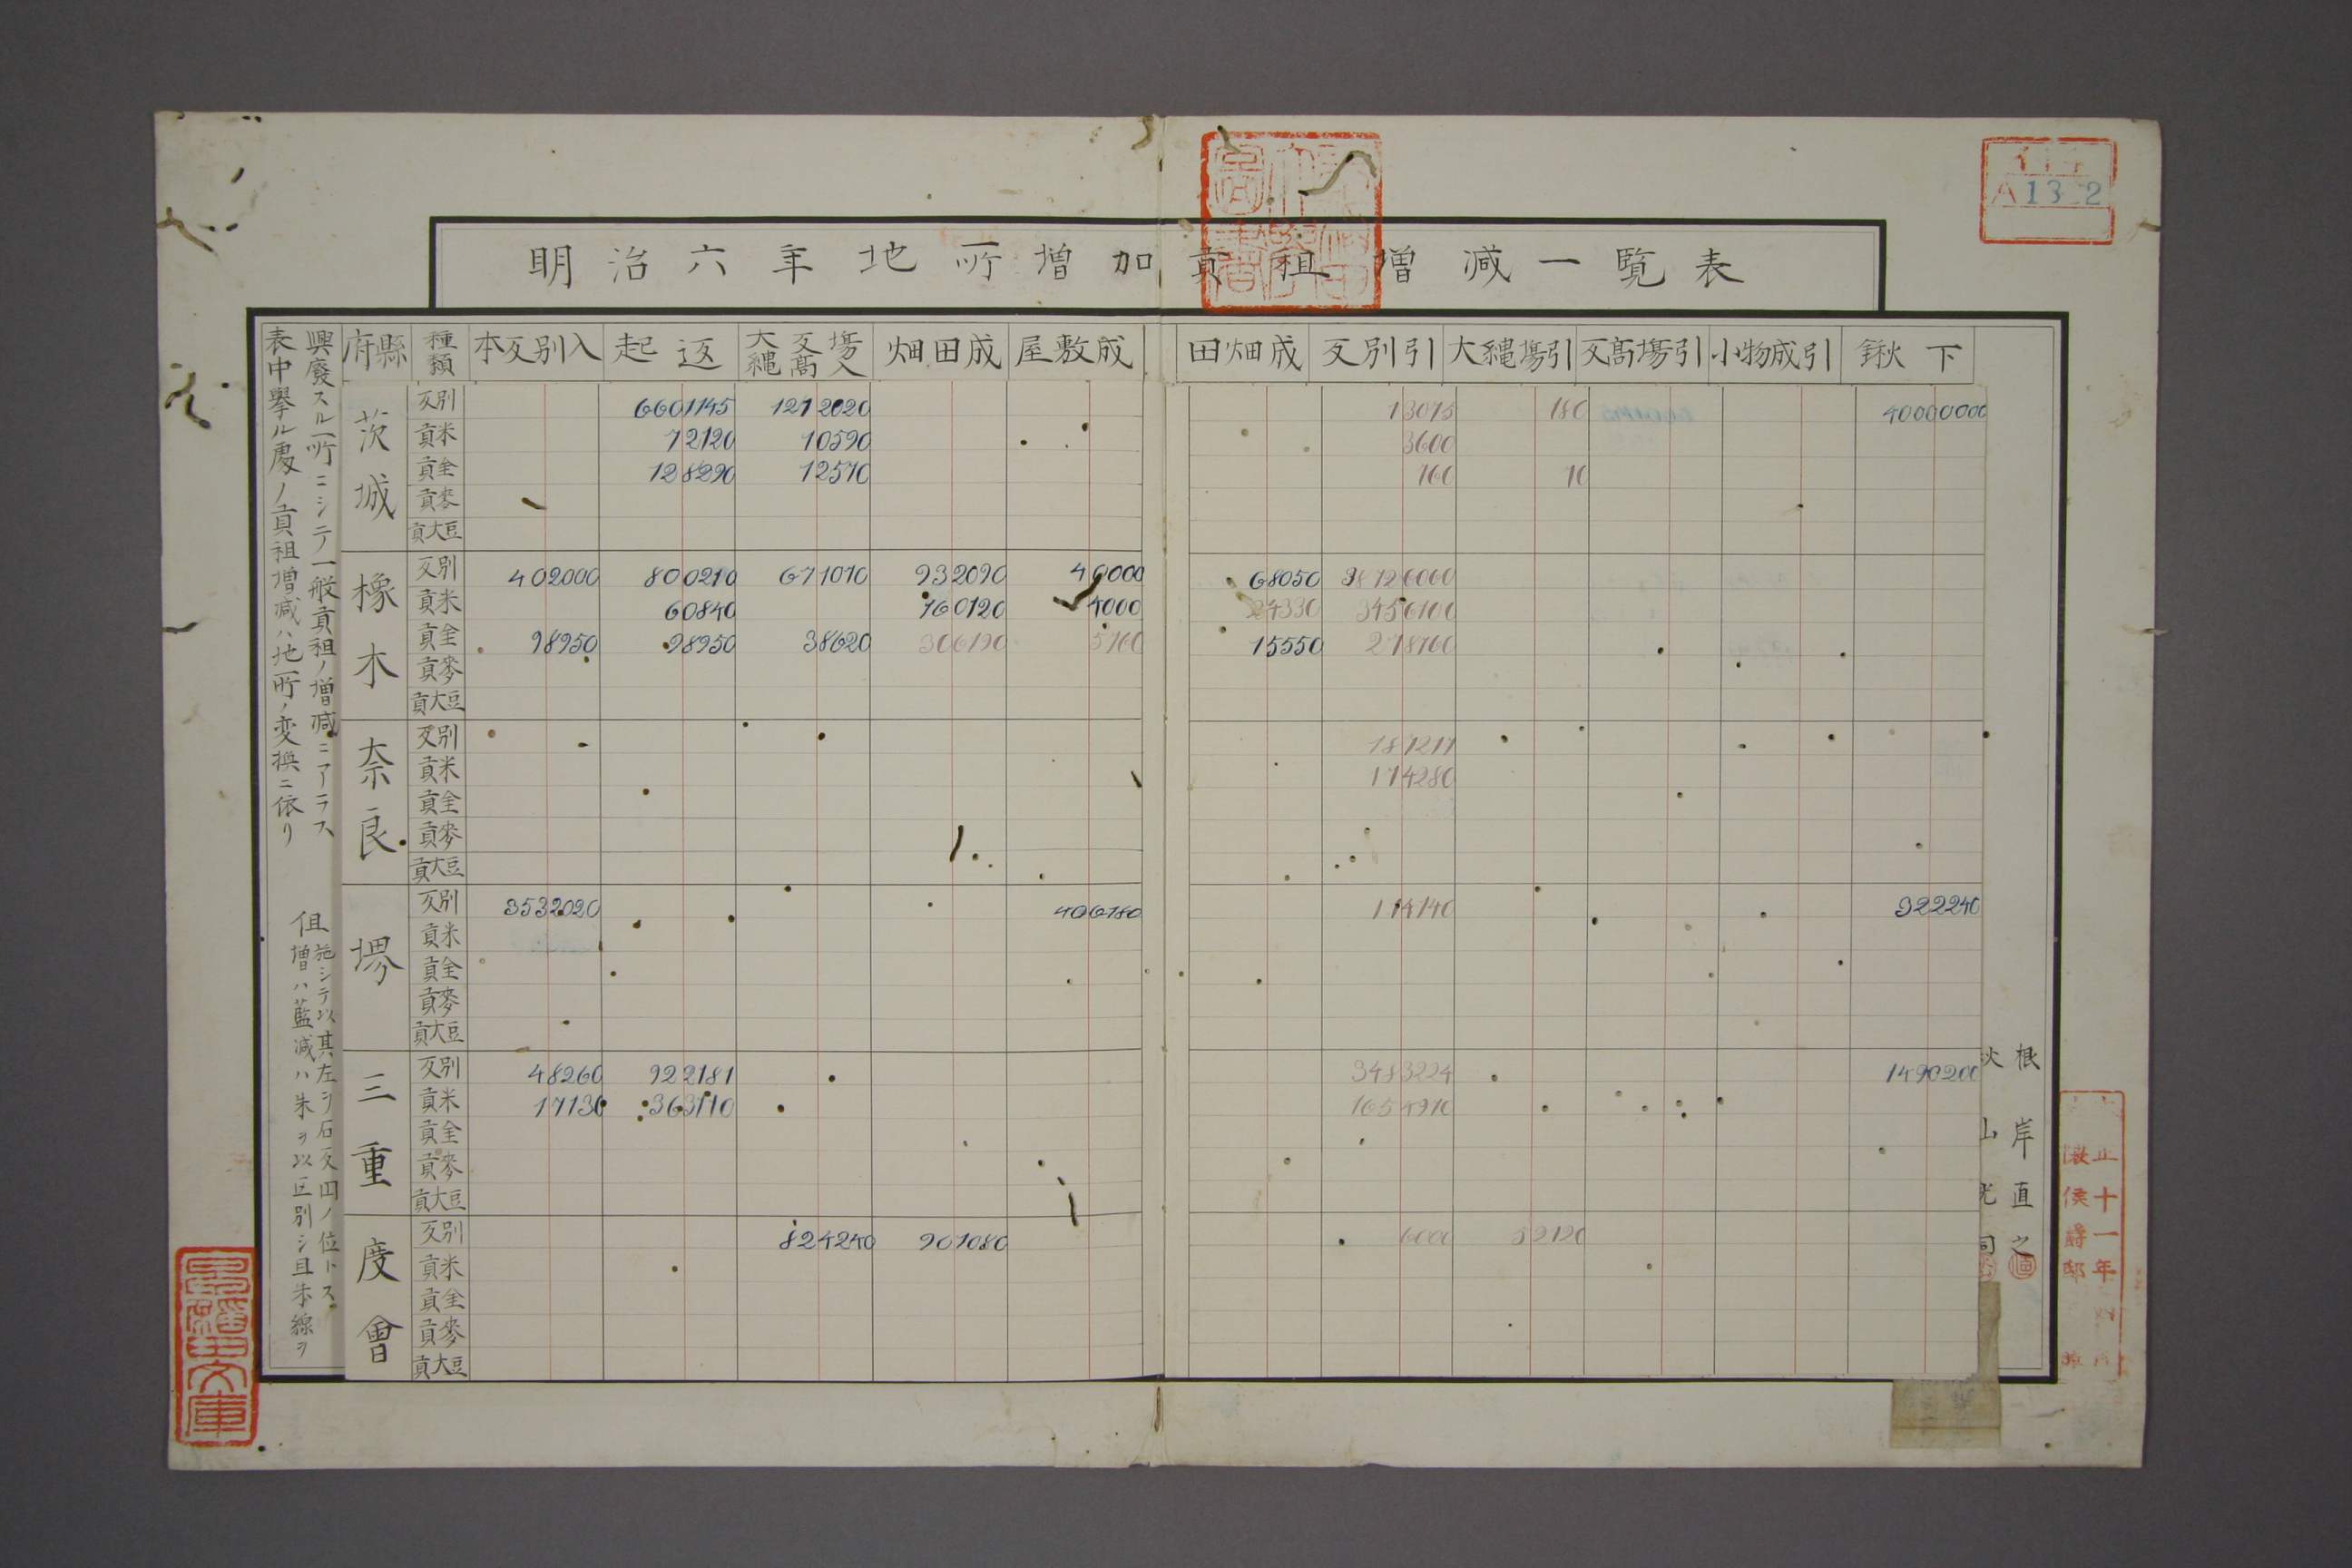 明治六年地所増加貢租増減一覧表
A13 2
府縣 種類 本反別入 起返 大縄反高場入 畑田成 屋敷成 田畑成 反別引 大縄場引 反高場引 小物成引 鍬下
茨城
反別 6601145 1212020 13015 180 40000000
貢米 12120 10590 3600
貢金 128290 12510 160 10
貢麥
貢大豆
橡木
反別 402000 800210 611010 932090 40000 68050
貢米 60840 160120 4000 24330 3456100
貢金 98950 98950 38620 306190 5160 15550 218160
貢麥
貢大豆
奈良
反別 181211
貢米 114280
貢金
貢麥
貢大豆
堺
反別 3532020 406180 114140 322240
貢米
貢金
貢麥
貢大豆
三重
反別 48260 922181 3483224 1490200
貢米 17130 363110 1654910
貢金
貢麥
貢大豆
度會
反別 824240 901080 6000 52120
貢米
貢金
貢麥
貢大豆
表中擧ル處ノ貢租増減ハ地所ノ変換ニ依リ
興廢スル所ニシテ一般貢租ノ増減ニアラス
但
増ハ藍減ハ朱ヲ以区別シ且朱線ヲ
施シテ以其左ヲ石反円ノ位トス
根岸直之
文庫